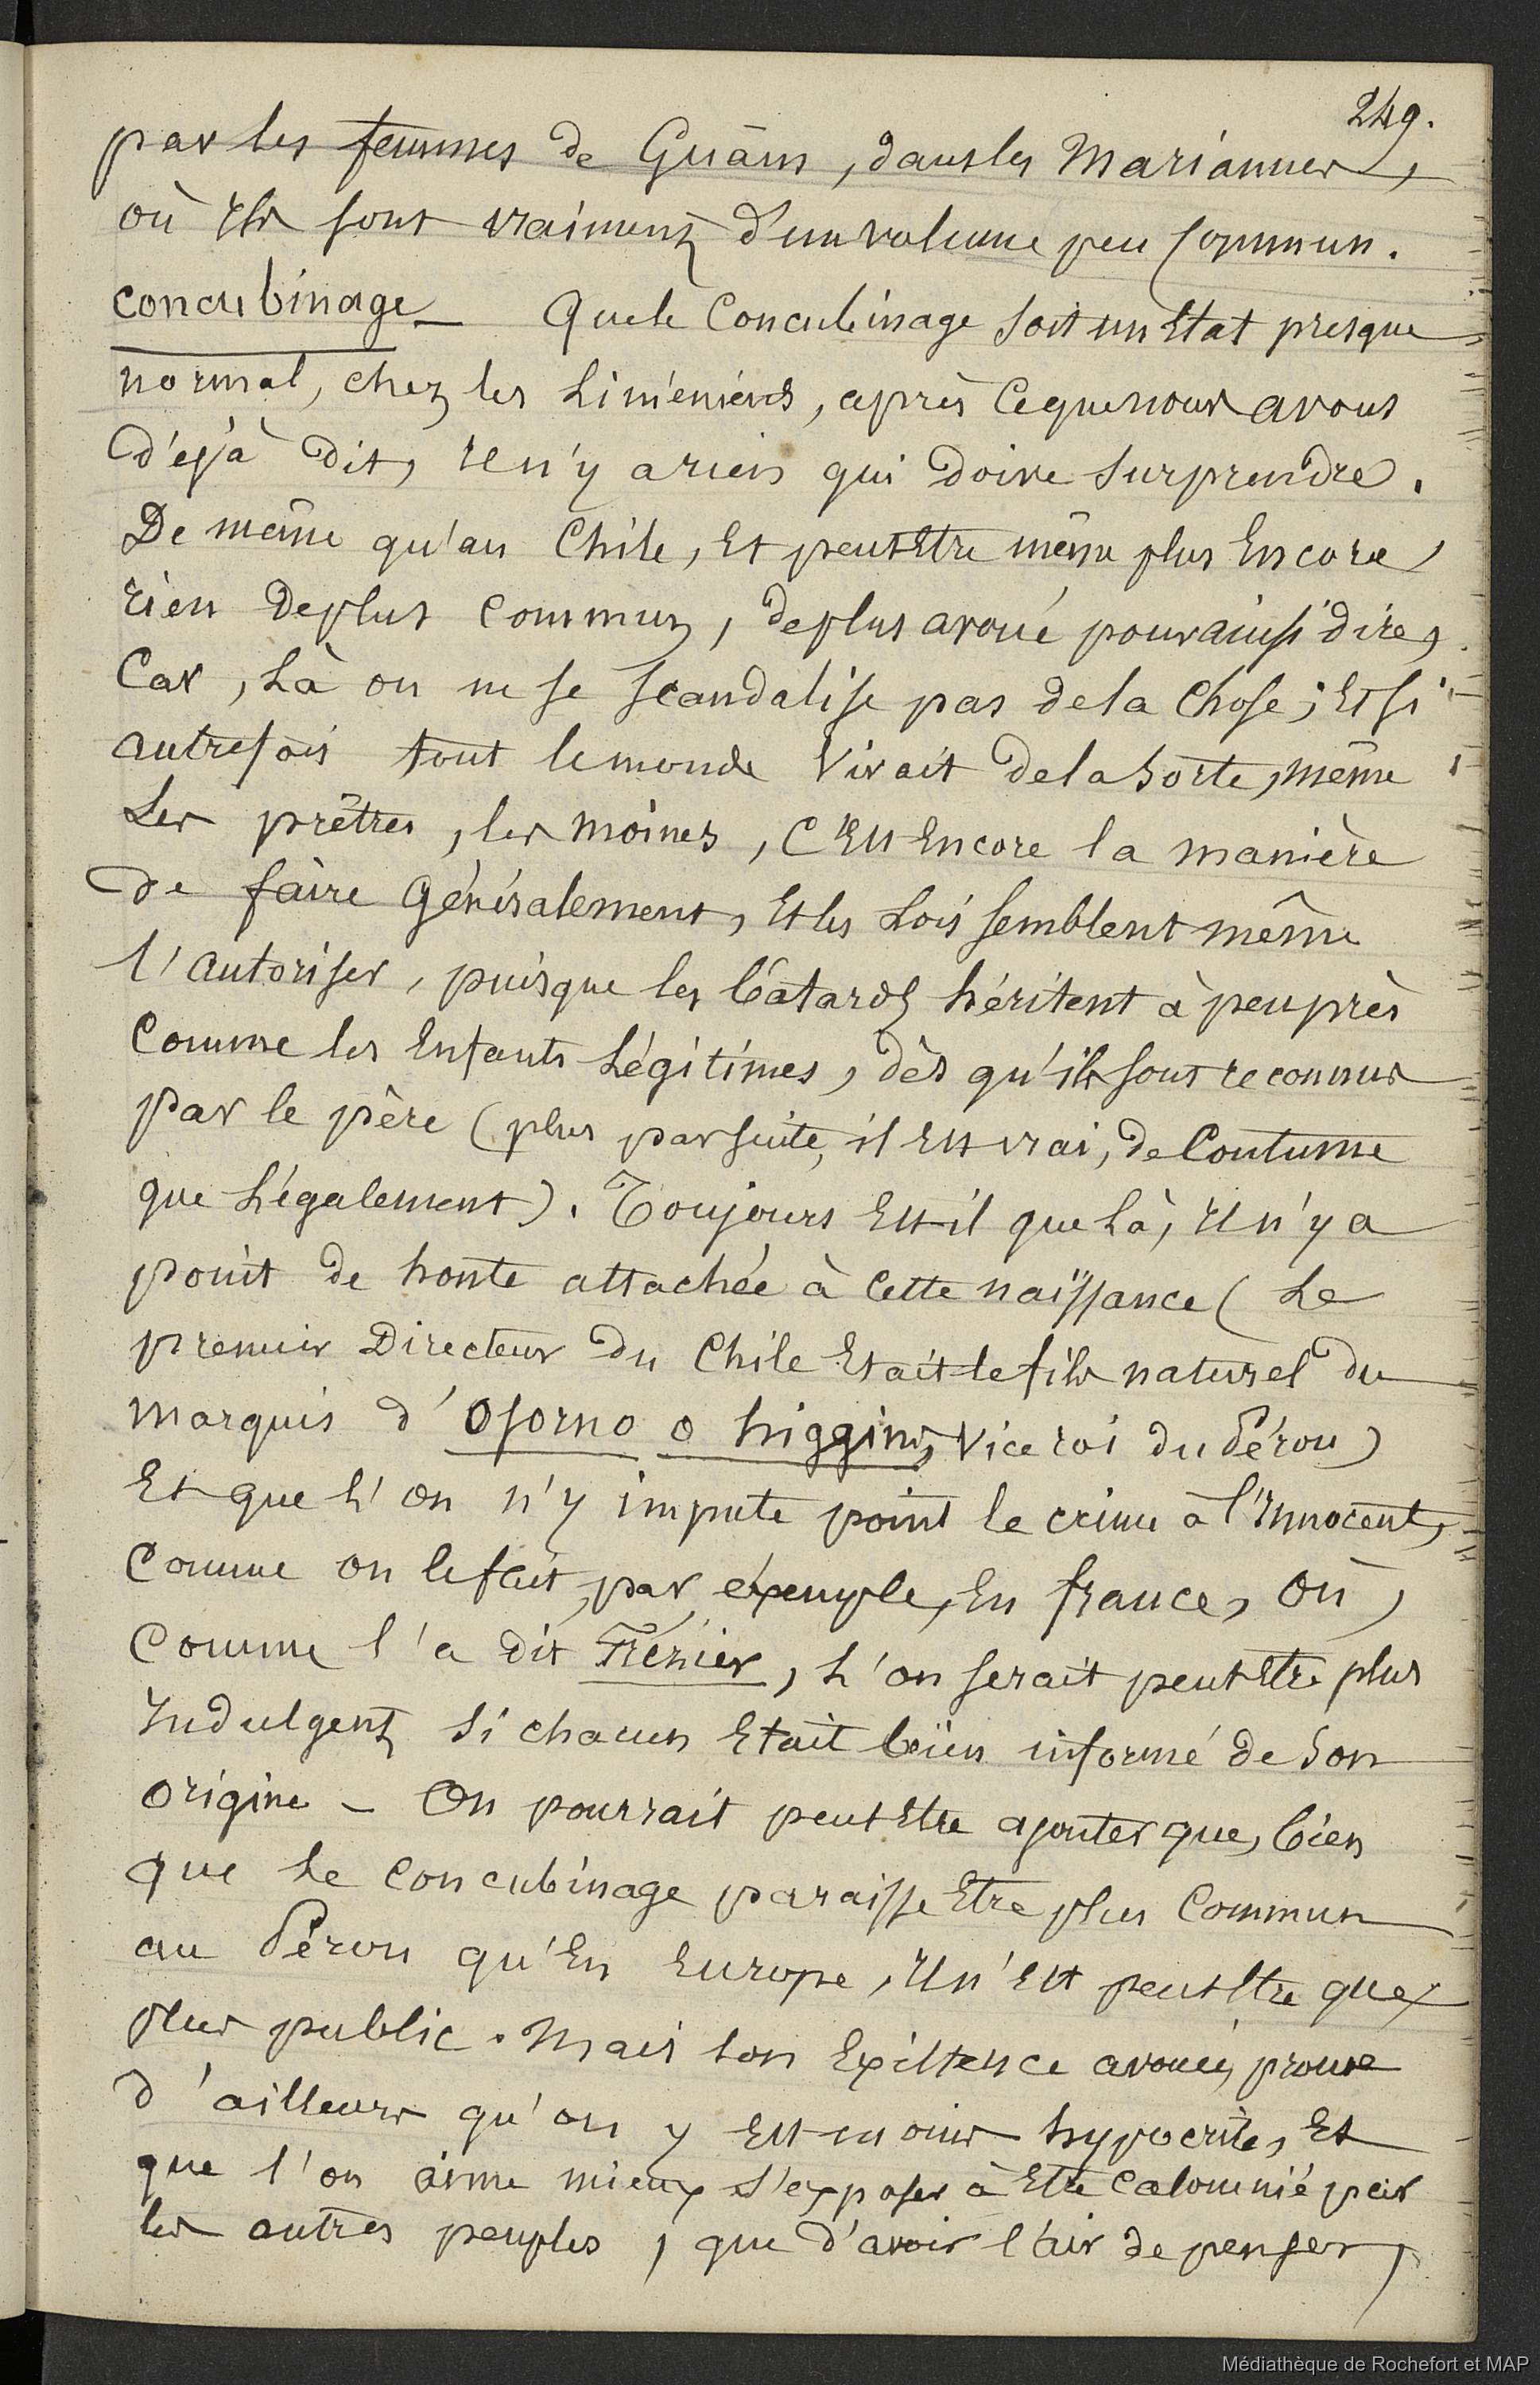 249.
par les femmes de Guam, dans les Mariannes,
où ils sont vraiment d'un volume peu commun.
concubinage_ Que le Concubinage soit un Etat presque
normal, chez les Liméniens, après ce que nous avons
déjà dit, il n'y a rien qui doive surprendre.
De même qu'au Chile, Et peut Etre même plus Encore,
rien de plus commun, de plus avoué pour ainsi dire,
Car, là on ne se scandalise pas de la chose; Et si
autrefois tout le monde vivait de la sorte, même
les prêtres, les moines, C'Est Encore la manière
de faire généralement, Et les Lois semblent même
l'autoriser, puisque les bâtards héritent à peu près
Comme les Enfants Légitimes, dès qu'ils sont reconnus
par le père (plus par suite, il Est vrai, de Coutume
que Légalement). Toujours Est-il que là, il n'y a
point de honte attachée à cette naissance (Le
premier Directeur du Chile Etait le fils naturel du
marquis d'Osorno o higgins, vice roi du Pérou)
Et que l'on n'y impute point le crime à l'Innocent,
Comme on le fait, par exemple, En france, où,
Comme l'a dit Frézier, l'on serait peut Etre plus
Indulgent si chacun Etait bien informé de son
origine - On pourrait peut Etre ajouter que, bien
que le concubinage paraisse Etre plus Commun
au Pérou qu'En Europe, il n'Est peut Etre que
plus public. Mais son Existence avouée, prouve
d'ailleurs qu'on y Est moins hypocrite, Et
que l'on aime mieux s'exposer à Etre calomnié par
les autres peuples, que d'avoir l'air de penser,
Médiathèque de Rochefort et MAP